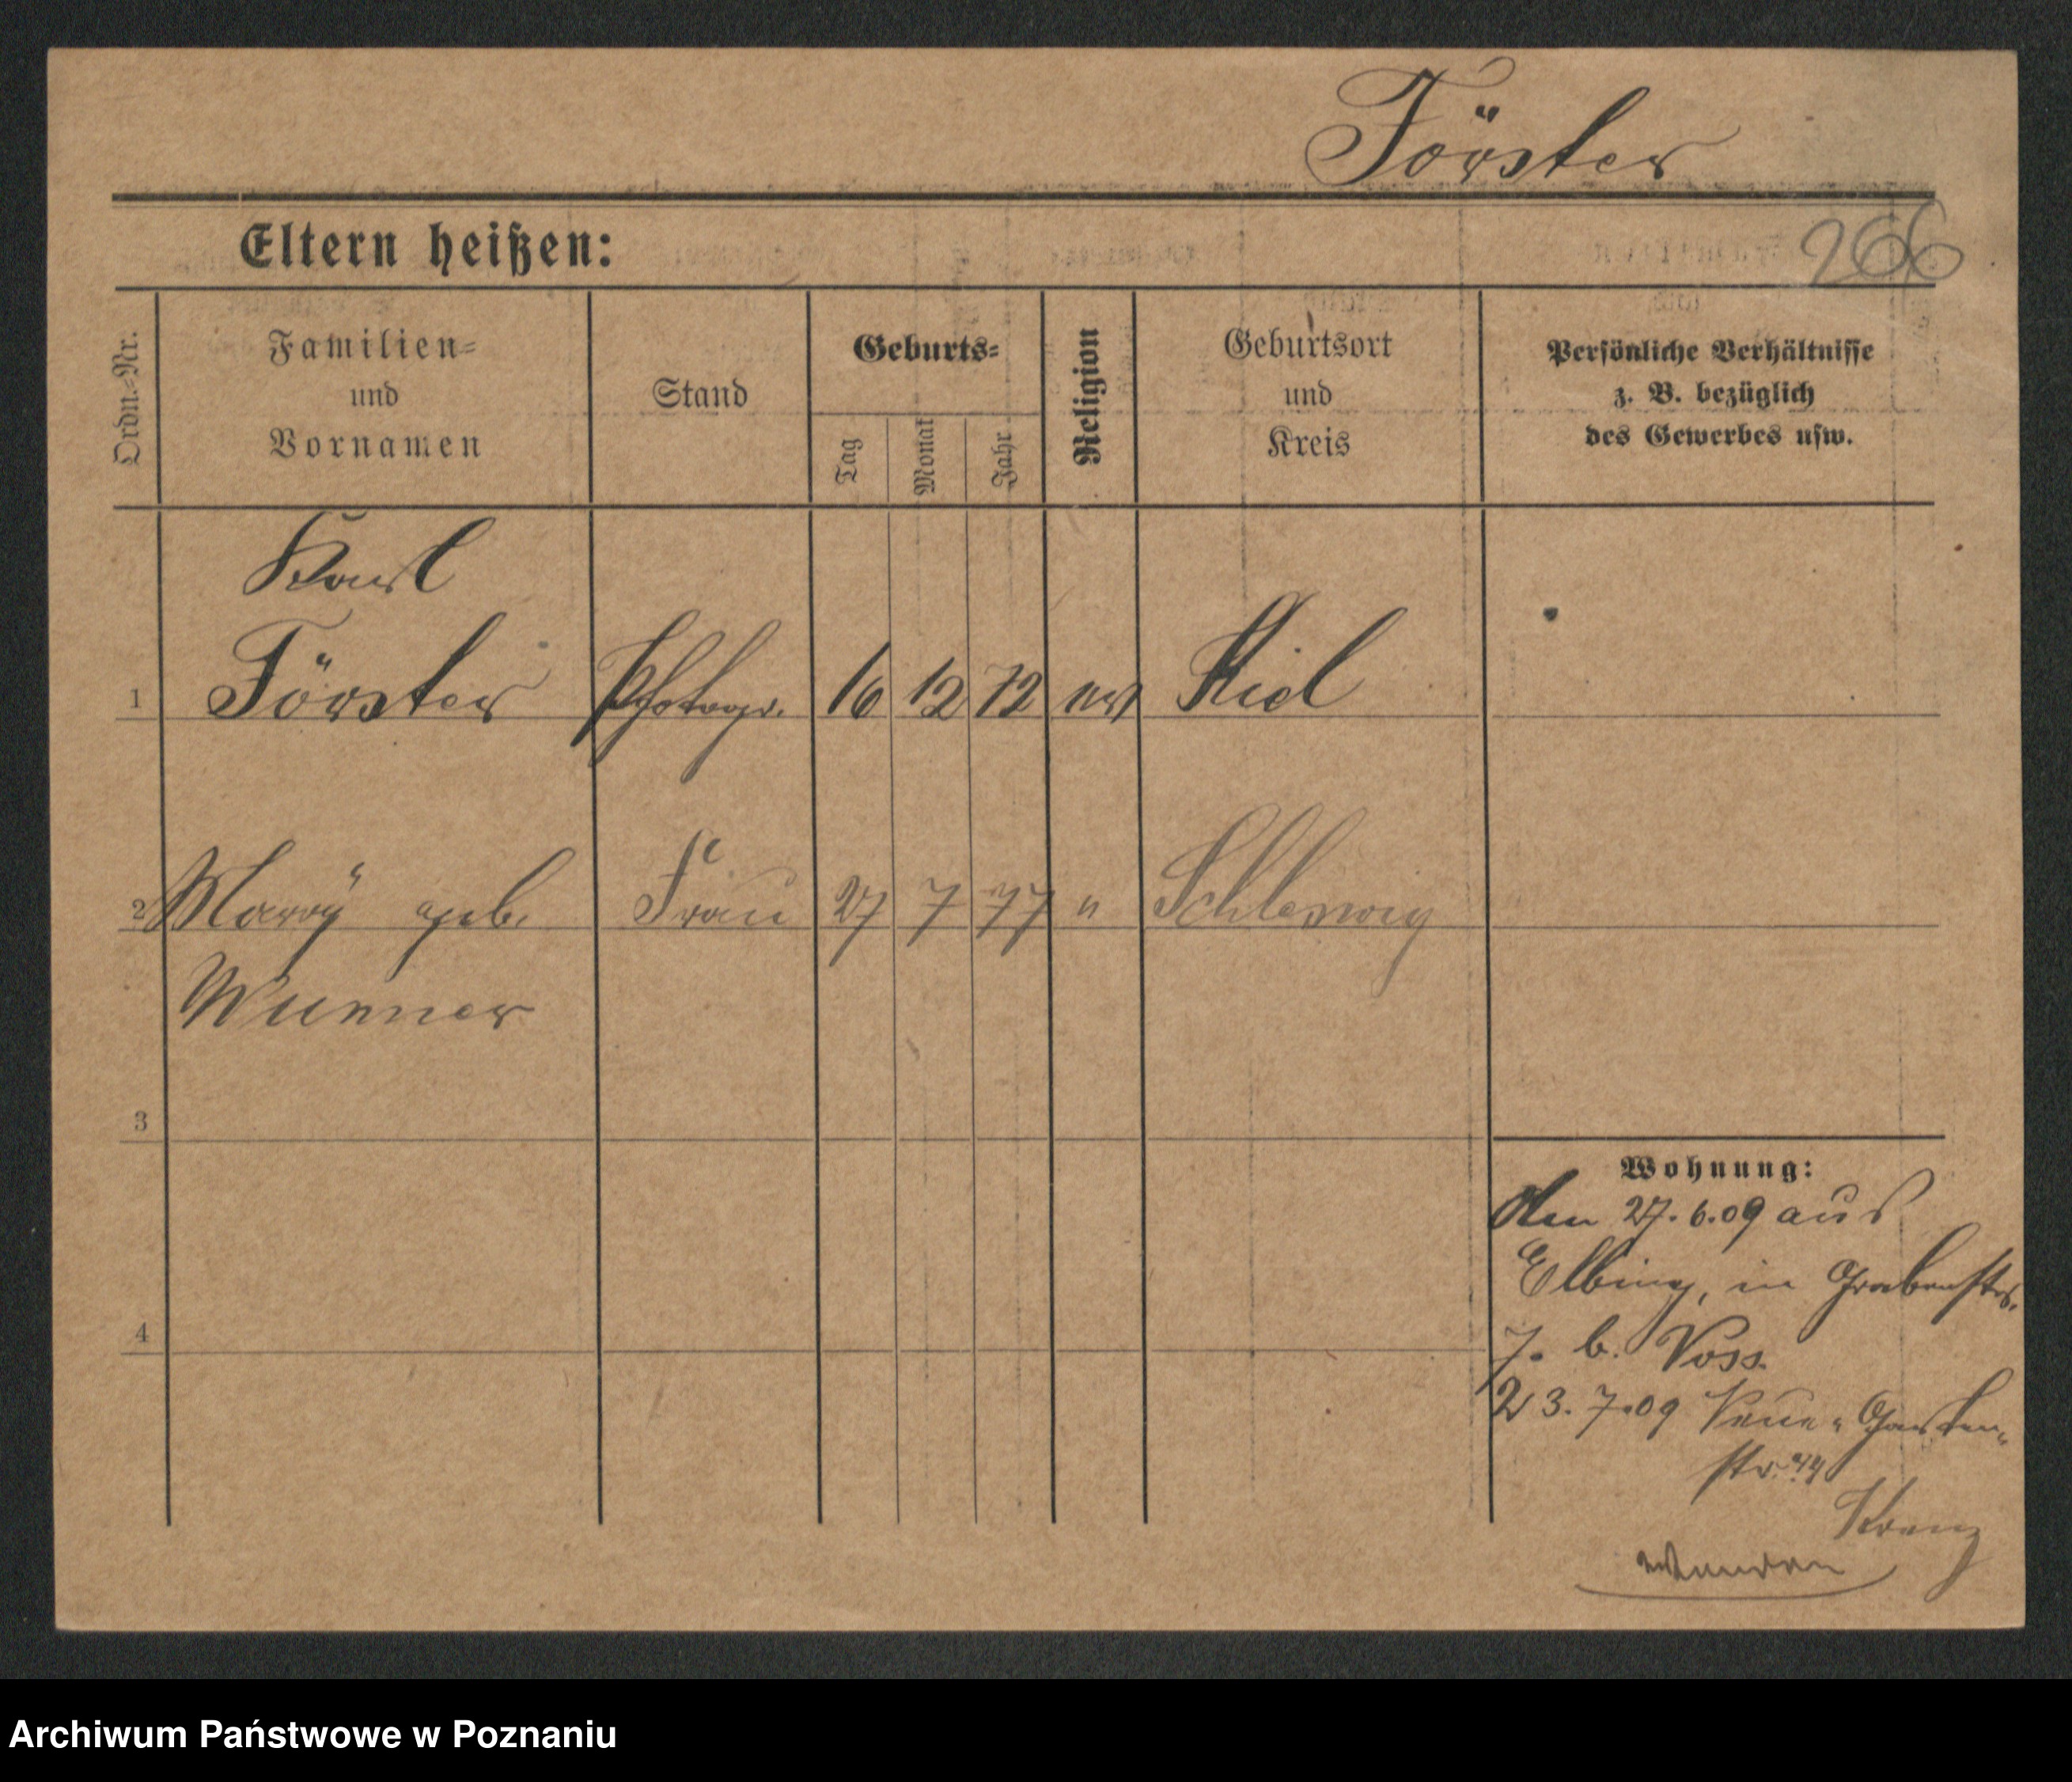 Förster
Eltern heißen:
266
Ordn.=Nr.
Familien=
und
Vornamen
Stand
Geburts=
Tag
Monat
Jahr
Religion
Geburtsort
und
Kreis
Persönliche Verhältnisse
z. B. bezüglich
des Gewerbes usw.
Karl
1 Förster Photogr. 16 12 72 ev Kiel
2 Mary geb. Frau 27 7 77 " Schleswig
Wunner
3
4
Wohnung:
den 27.6.09 aus
Elbing, in Grabenstr.
7. b. Voss
23.7.09 Neue-Garten-
str. 44
Krenz